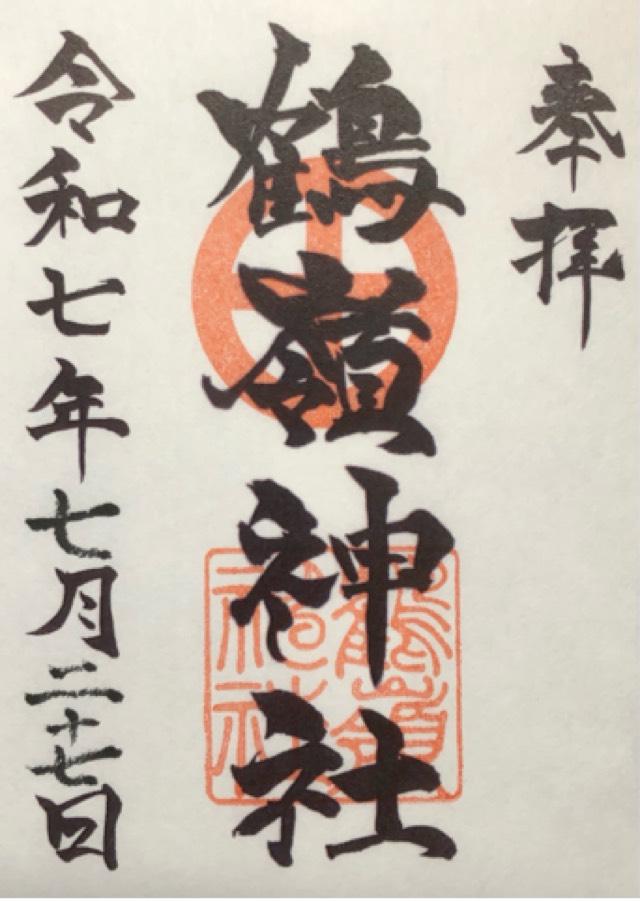 奉拝
鶴嶺神社
令和七年七月二十七日
鶴嶺
神社